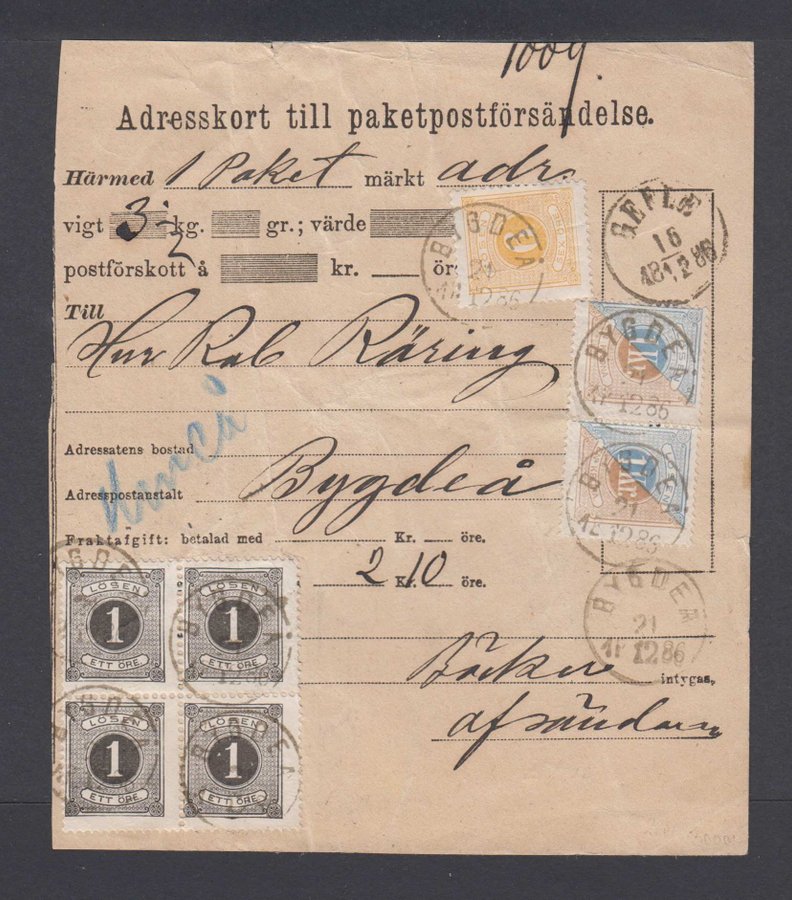 1009.
Adresskort till paketpostförsändelse.
Härmed 1 Paket märkt adr.
vigt 3 ½ kg. gr.; värde
postförskott å kr. öre
Till
Herr Rab Räring
Adressatens bostad
Adresspostanstalt Bygdeå
Fraktafgift: betalad med Kr. öre.
2 Kr. 10 öre.
Böcker intygas,
afsändaren
Umeå
GEFLE
16
12 86
BYGDEÅ
21
12 86
BYGDEÅ
21
12 86
BYGDEÅ
21
12 86
BYGDEÅ
21
12 86
LÖSEN
1
ETT ÖRE.
LÖSEN
1
ETT ÖRE.
BYGDEÅ
12 86
LÖSEN
1
ETT ÖRE.
BYGDEÅ
LÖSEN
1
ETT ÖRE.
BYGDEÅ